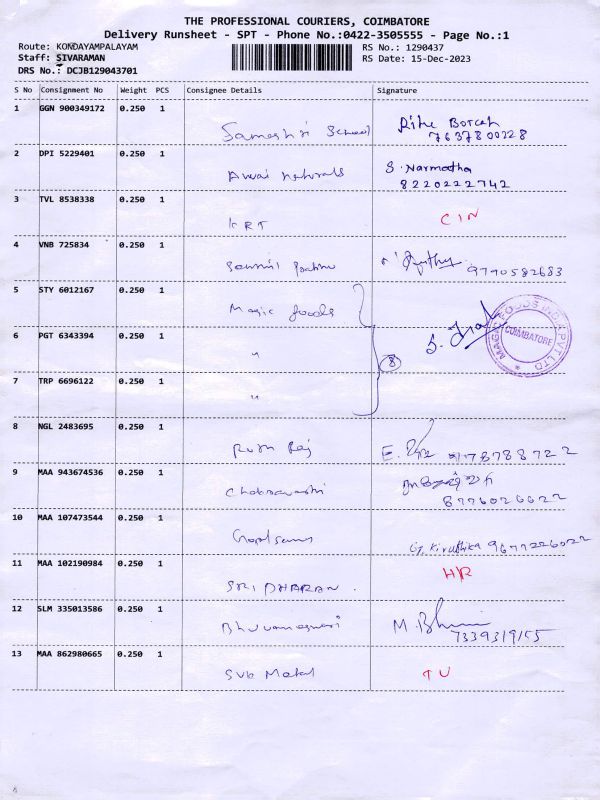 THE PROFESSIONAL COURIERS, COIMBATORE
Delivery Runsheet - SPT - Phone No.:0422-3505555 - Page No.:1
Route: KONDAYAMPALAYAM RS No.: 1290437
Staff: SIVARAMAN RS Date: 15-Dec-2023
DRS No.: DCJB129043701
S No Consignment No Weight PCS Consignee Details Signature
1 GGN 900349172 0.250 1 School
7637800228
2 DPI 5229401 0.250 1 naturals S. Narmatha
8220222742
3 TVL 8538338 0.250 1 KRT CIN
4 VNB 725834 0.250 1 9790582683
5 STY 6012167 0.250 1 Magic foods
6 PGT 6343394 0.250 1 " 8
MAGIC FOODS INDIA PVT LTD COIMBATORE
7 TRP 6696122 0.250 1 "
8 NGL 2483695 0.250 1 E.
9 MAA 943674536 0.250 1
10 MAA 107473544 0.250 1 G. Kiruthika 9677226022
11 MAA 102190984 0.250 1 SRI DHARAN. H/R
12 SLM 335013586 0.250 1 Bhuvaneswari M. Bhuvi
7339319155
13 MAA 862980665 0.250 1 Sub Metal TU